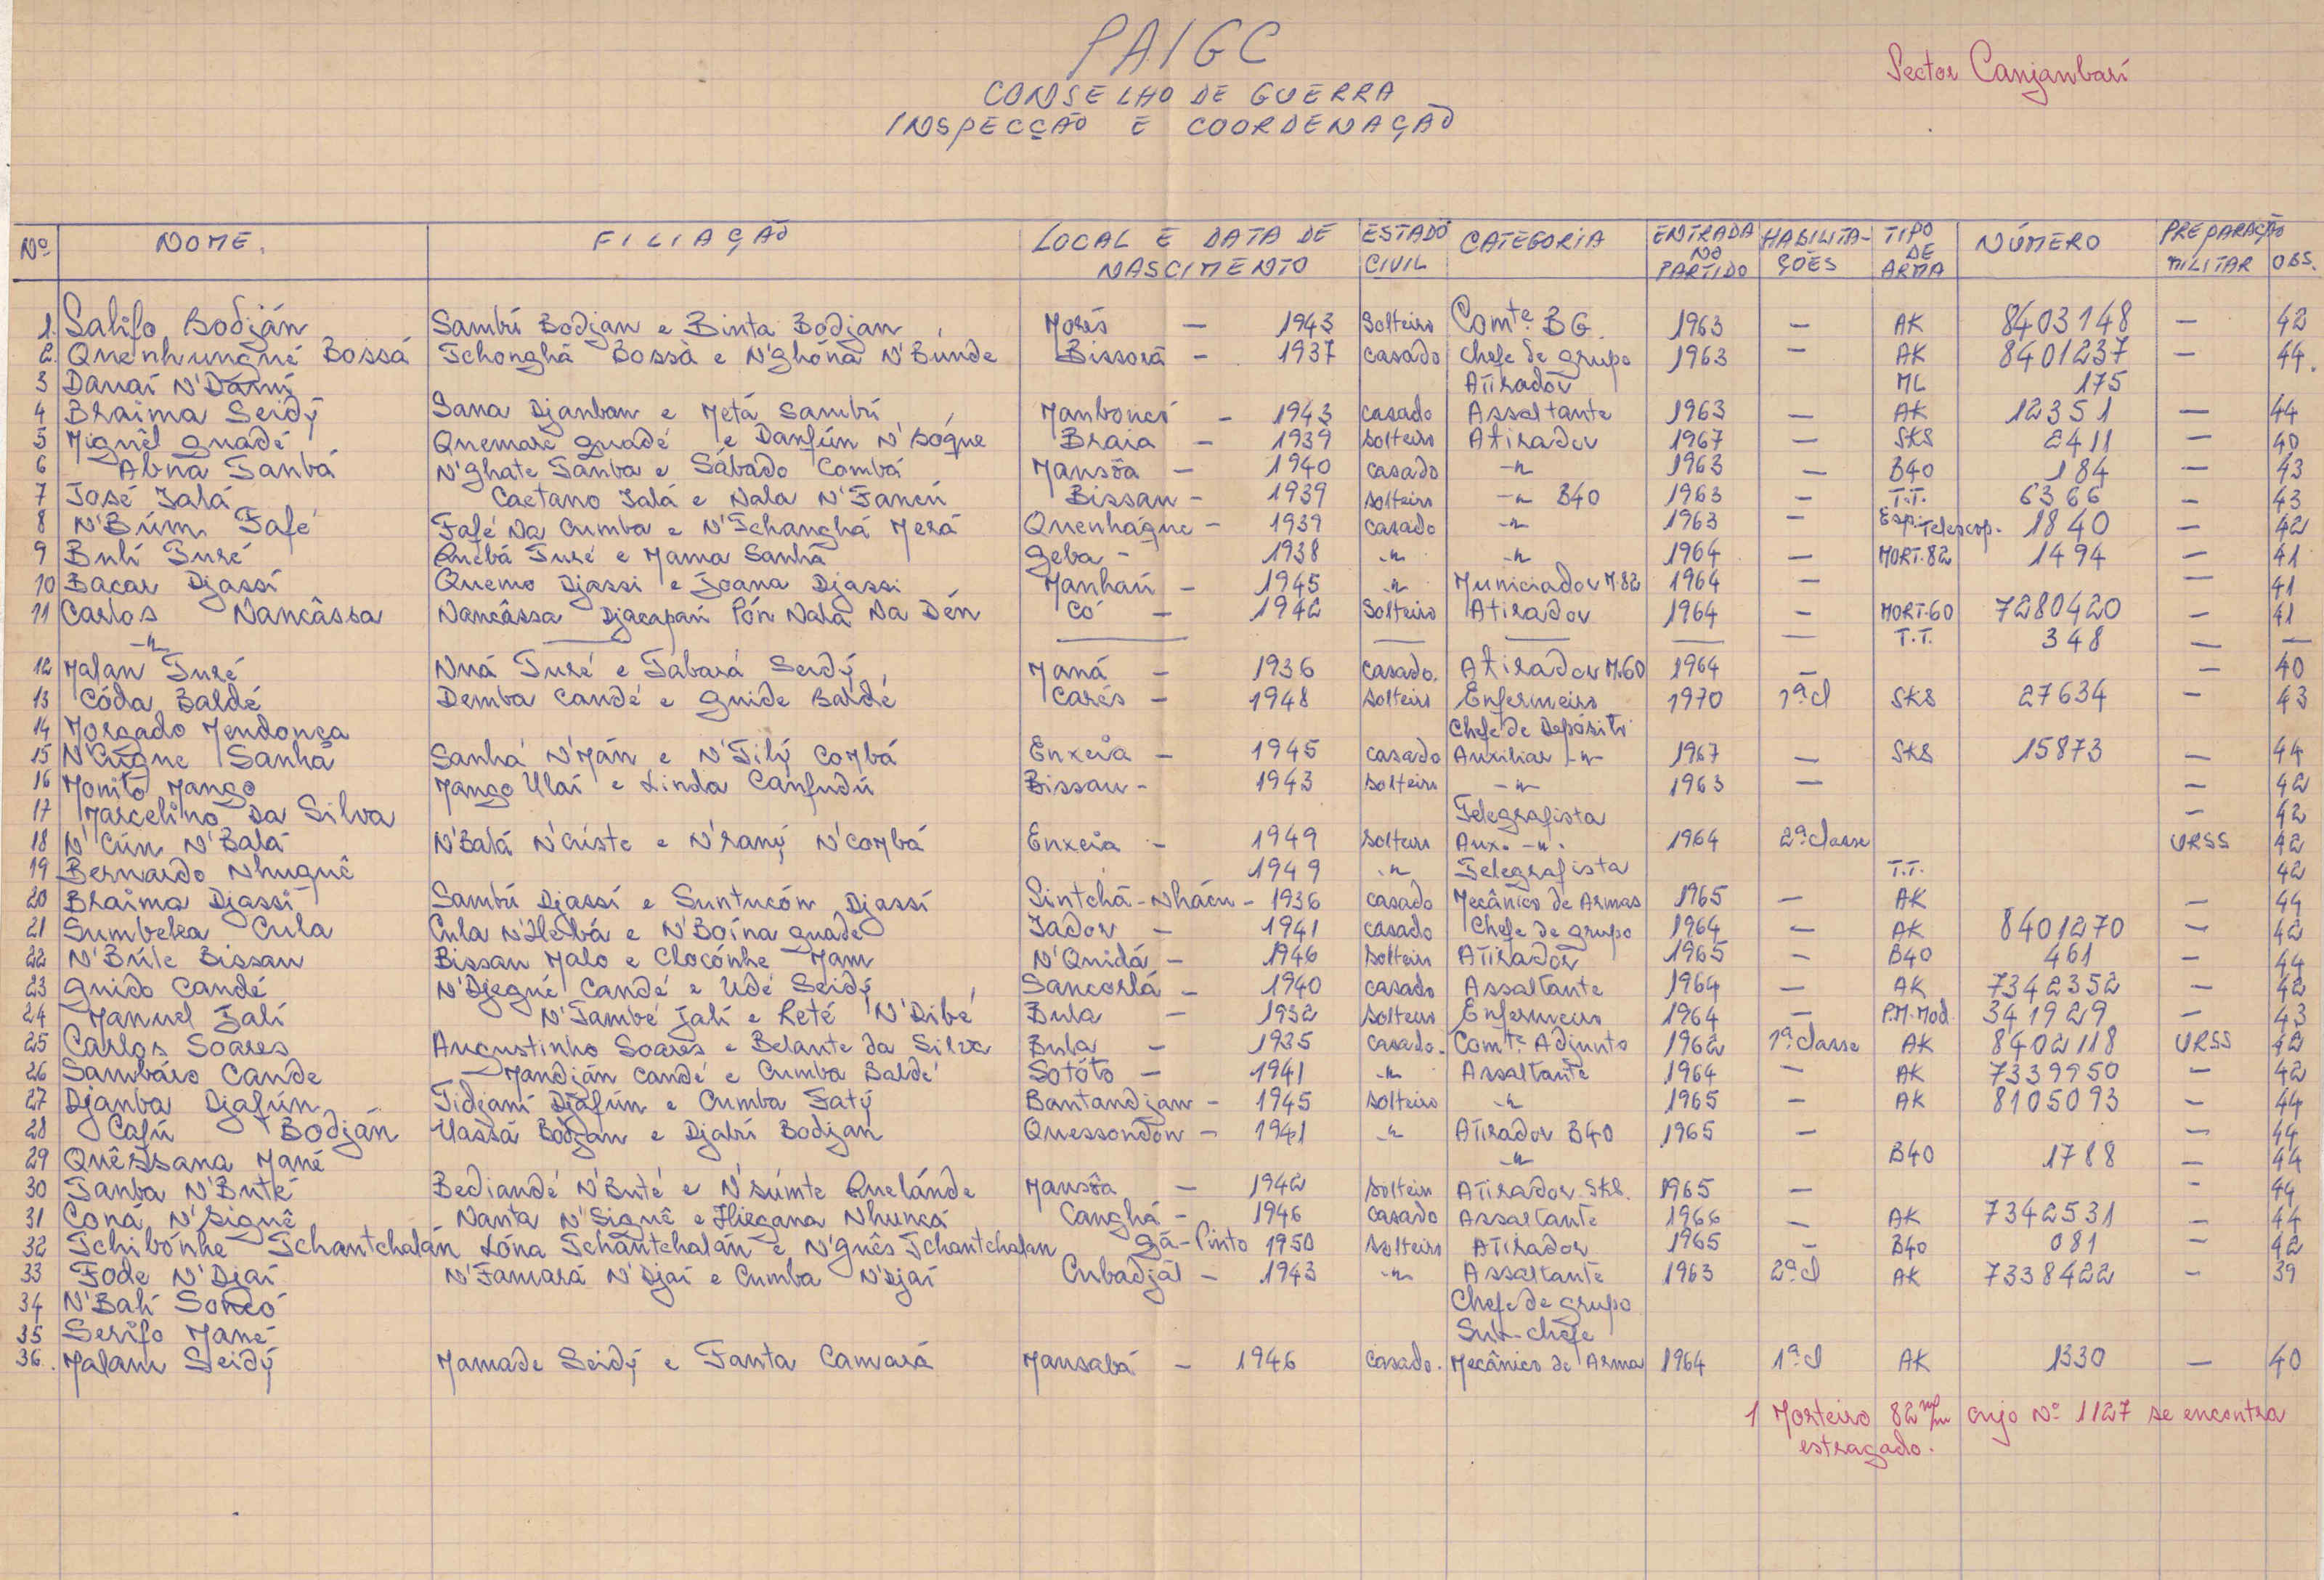 PAIGC
Sector Canjanbari
CONSELHO DE GUERRA
INSPECÇÃO E COORDENAÇÃO
Nº NOME. FILIAÇÃO LOCAL E DATA DE NASCIMENTO ESTADO CIVIL CATEGORIA ENTRADA NO PARTIDO HABILITAÇÕES TIPO DE ARMA NÚMERO PREPARAÇÃO MILITAR OBS.
1. Salifo Bodján Sambú Bodjan e Binta Bodjan Morés — 1943 Solteiro Comte. BG 1963 — AK 8403148 — 42
2. Quenhungué Bossá Tchonghã Bossà e N'ghóna N'Búnde Bissorã — 1937 casado chefe de grupo 1963 — AK 8401237 — 44.
3 Danaí N'Damí Atirador ML 175
4 Braima Seidý Sana Djanban e Metá Sambú Mamboncó — 1943 casado Assaltante 1963 — AK 12351 — 44
5 Miguêl guadé Quemare guadé e Danfún N'Bóque Braia — 1939 solteiro Atirador 1967 — SKS 2411 — 40
6 Abna Tanbá N'ghate Tanba e Sábado Combá Mansôa — 1940 casado -"- 1963 — B40 184 — 43
7 José Ialá Caetano Ialá e Nala N'Fancú Bissau — 1939 solteiro -"- B40 1963 — T.T. 6366 — 43
8 N'Búm Fafé Fafé Na Cumba e N'Tchanghá Merá Quenhaque — 1939 casado -"- 1963 — Esp. Telescop. 1840 — 42
9 Buli Turé Quebá Turé e Mama Sanhã Geba — 1938 -"- -"- 1964 — MORT.82 1494 — 41
10 Bacar Djassí Quemo Djassi e Joana Djassi Manhaú — 1945 -"- Municiador M.82 1964 — — 41
11 Carlos Nancâssa Nancâssa Djacapaú Pón Nará Na Dén Có — 1942 Solteiro Atirador 1964 — MORT-60 7280420 — 41
-"- — — — — — — T.T. 348 — —
12 Malan Turé Nuá Turé e Tabará Seidý Maná — 1936 casado. Atirador M.60 1964 — — 40
13 Códa Baldé Demba Candé e Guide Baldé Carés — 1948 solteiro Enfermeiro 1970 1ª cl SKS 27634 — 43
14 Morgado Mendonça Chefe de Depósito
15 N'Cugne Sanhã Sanhá N'Mán e N'Tilý Combá Enxeia — 1945 casado Auxiliar -"- 1967 — SKS 15873 — 44
16 Monito Mango Mango Ulaí e Linda Canfudú Bissau — 1943 solteiro -"- 1963 — — 42
17 Marcelino Da Silva Telegrafista — 42
18 N'Cún N'Balá N'Balá N'Críste e N'ramý N'Combá Enxeia — 1949 solteiro Aux. -"-. 1964 2ª classe URSS 42
19 Bernardo Nhuquê 1949 -"- Telegrafista T.T. 42
20 Braima Djassí Sambú Djassí e Suntucón Djassí Sintchã-Nhácu — 1936 casado Mecânico de Armas 1965 — AK — 44
21 Sumbeta Cula Cula N'Hebá e N'Boína guade Jador — 1941 casado Chefe de grupo 1964 — AK 8401270 — 42
22 N'Búte Bissau Bissau Malo e Clocónhe Mam N'Quidá — 1946 solteiro Atirador 1965 — B40 461 — 44
23 guido Candé N'Djegué Candé e Udé Seidý Sancorlá — 1940 casado Assaltante 1964 — AK 7342352 — 42
24 Manuel Jalí N'També Jalí e Reté N'Dibé Bula — 1932 solteiro Enfermeiro 1964 — P.M. Mod. 341929 — 43
25 Carlos Soares Augustinho Soares e Belante da Silva Bula — 1935 casado. Comte. Adjunto 1962 1ª classe AK 8402118 URSS 42
26 Sambáro Cande Mandján Candé e Cumba Baldé Sotóto — 1941 -"- Assaltante 1964 — AK 7339950 — 42
27 Djanba Djafún Tidjaní Djafún e Cumba Fatý Bantandjan — 1945 solteiro -"- 1965 — AK 8105093 — 44
28 Cafú Bodján Uassá Bodjan e Djabú Bodjan Quessondón — 1941 -"- Atirador B40 1965 — — 44
29 Quêssana Mané -"- B40 1788 — 44
30 Tanba N'Buté Bediandé N'Buté e N'súmte Quelánde Mansôa — 1942 solteiro Atirador SKS. 1965 — — 44
31 Coná N'Siguê Nanta N'Siguê e Hiegana Nhuncá Canghá — 1946 casado Assaltante 1966 — AK 7342531 — 44
32 Tchibónhe Tchantchalán Lóna Tchantchalán e N'guês Tchantchalan Gã-Pinto 1950 solteiro Atirador 1965 — B40 081 — 42
33 Fode N'Djaí N'Famará N'Djaí e Cumba N'Djaí Cubadjál — 1943 -"- Assaltante 1963 2ª cl AK 7338422 — 39
34 N'Balí Soncó Chefe de grupo
35 Serifo Mané Sub-chefe
36. Malam Seidý Mamade Seidý e Fanta Camará Mansabá — 1946 casado. Mecânico de Arma 1964 1ª cl AK 1330 — 40
1 Morteiro 82 m/m cujo Nº 1127 se encontra
estragado.